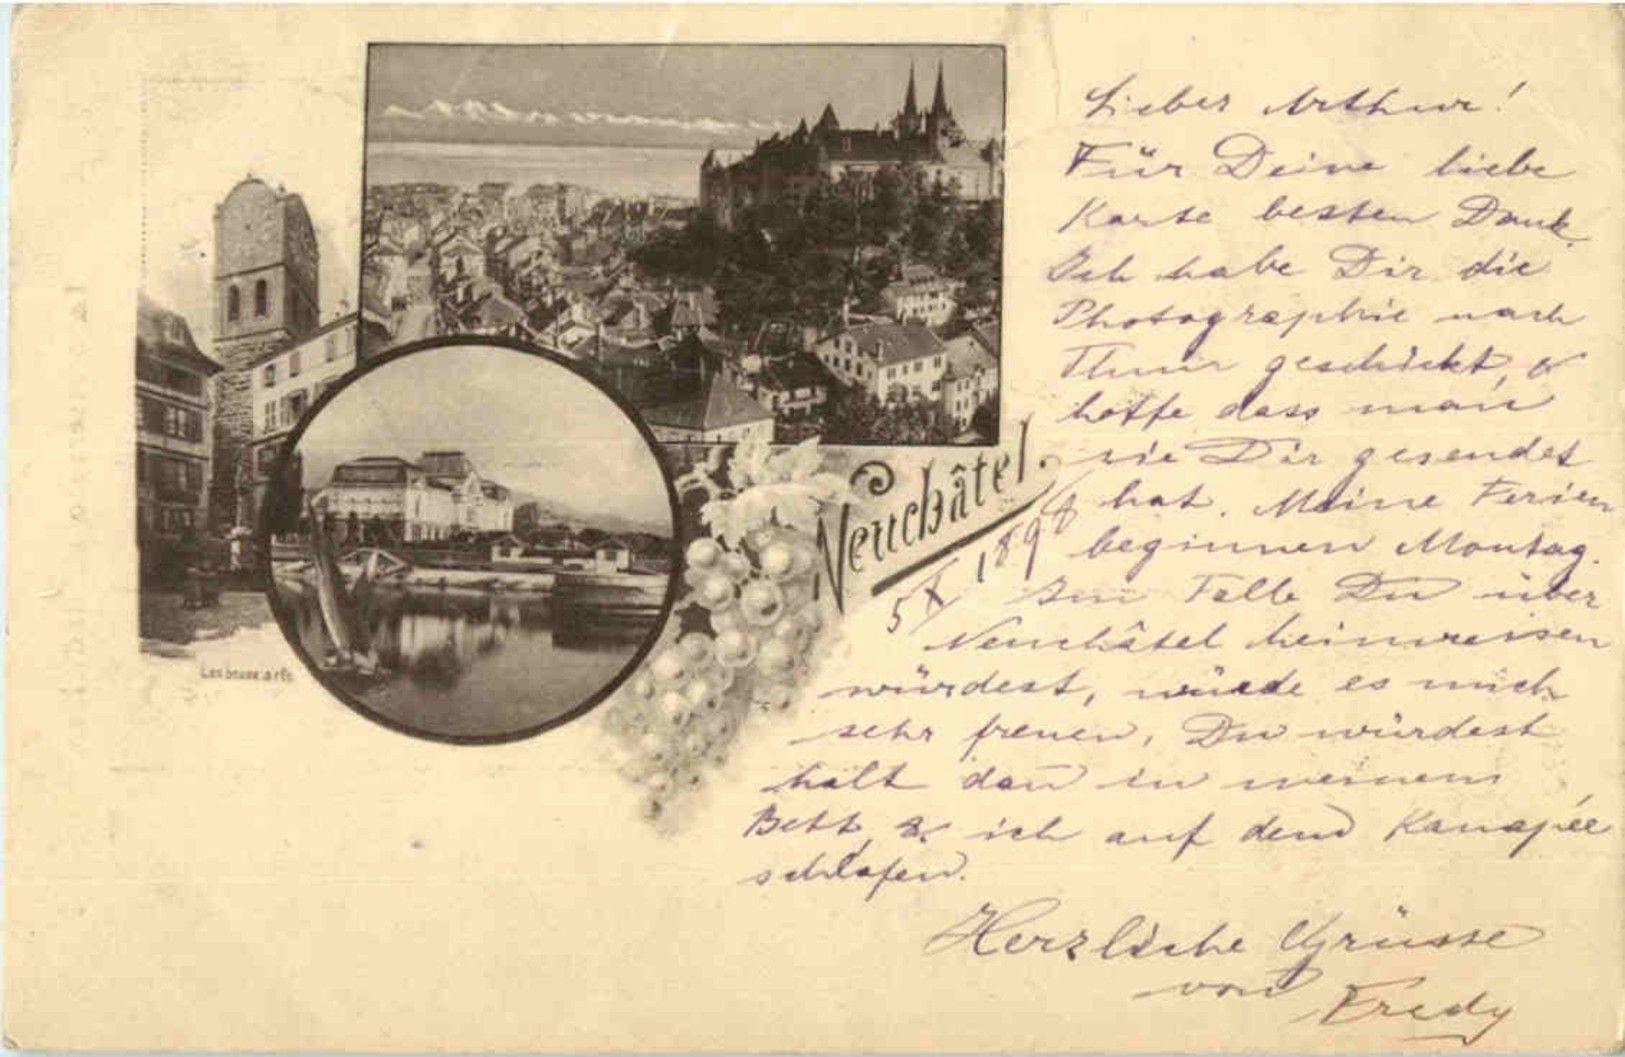 Lieber Arthur!
Für Deine liebe
Karte besten Dank.
Ich habe Dir die
Photographie nach
Thun geschickt, &
hoffe dass man
sie Dir gesendet
hat. Meine Ferien
beginnen Montag.
Im Falle Du über
Neuchâtel heimreisen
würdest, würde es mich
sehr freuen, Du würdest
halt dan in meinem
Bett & ich auf dem Kanapée
schlafen.
Herzliche Grüsse
von Fredy
Neuchâtel.
5 X 1898